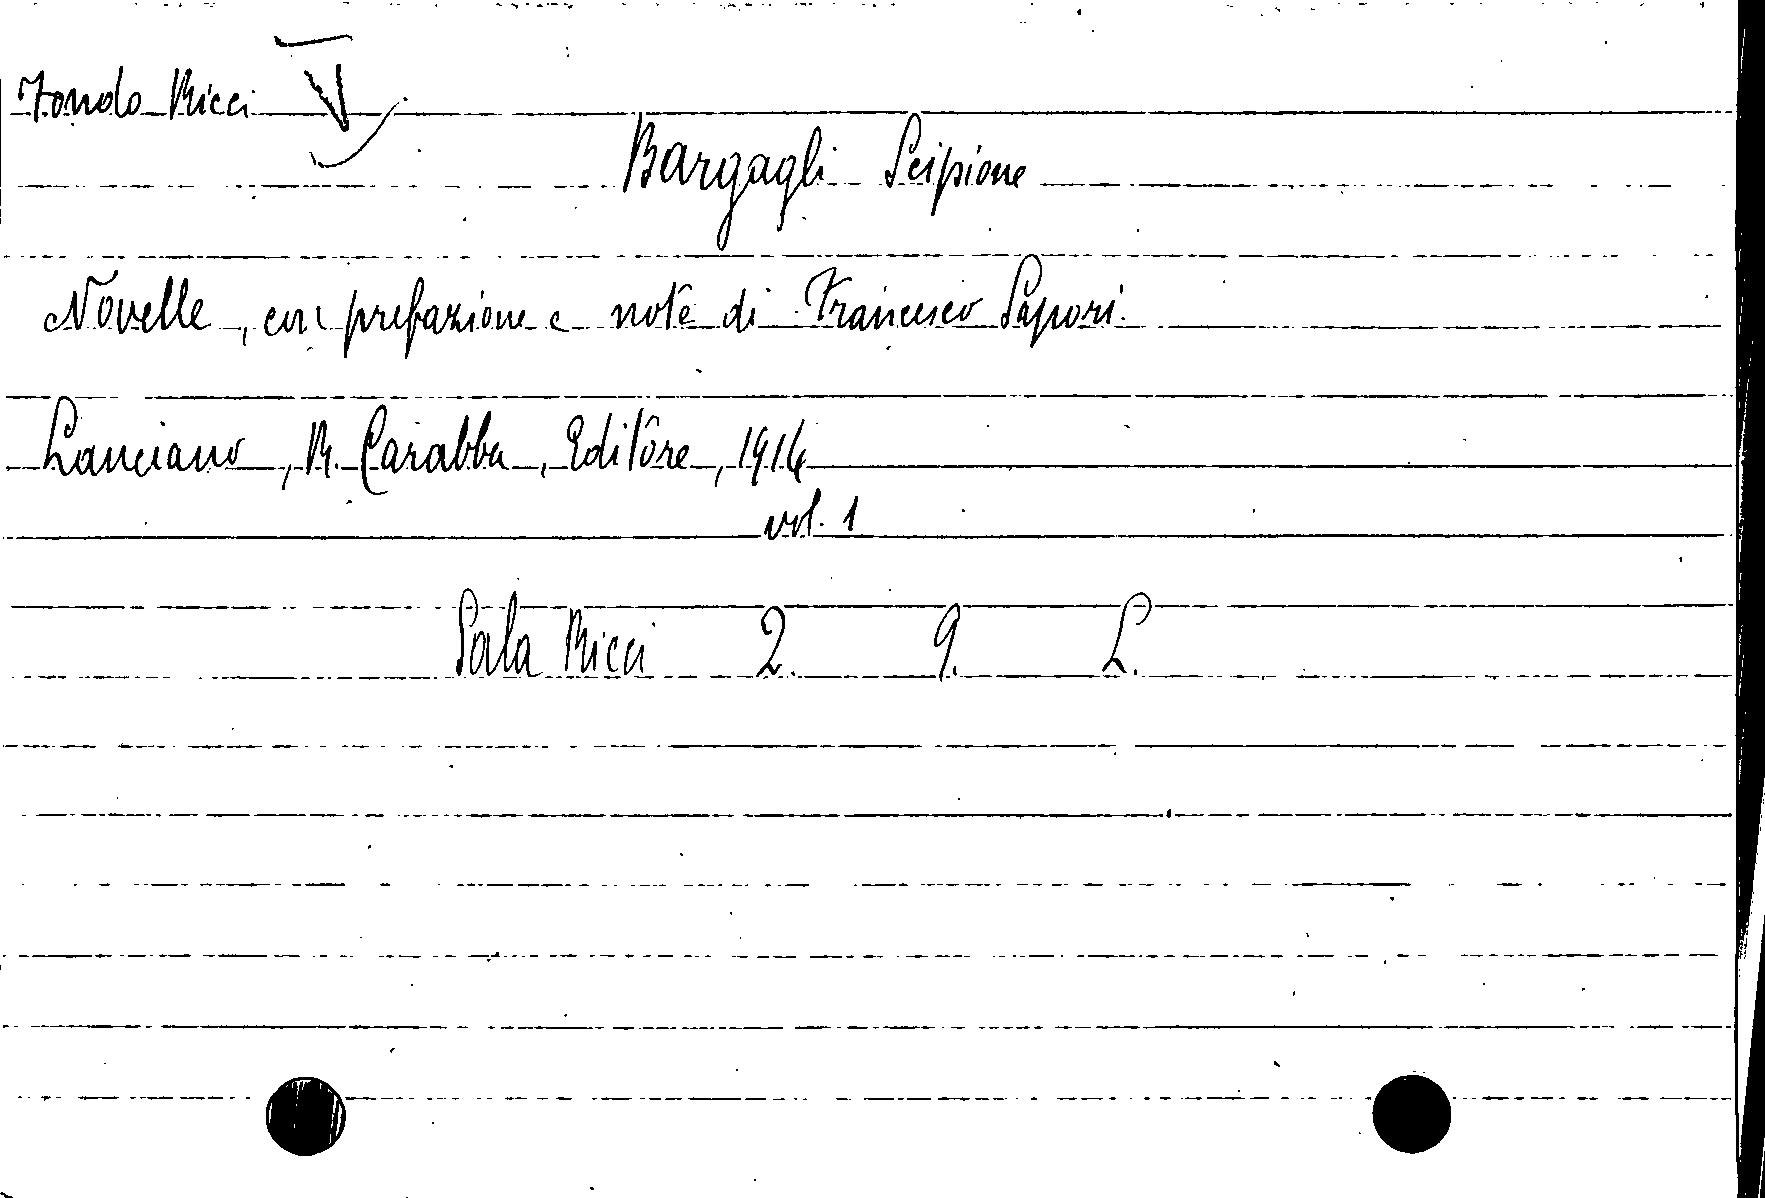 Fondo Ricci V
Bargagli Scipione
Novelle, con prefazione e note di Francesco Sapori.
Lanciano, R. Carabba, Editore, 1914
vol. 1
Sala Ricci 2. 9. L.